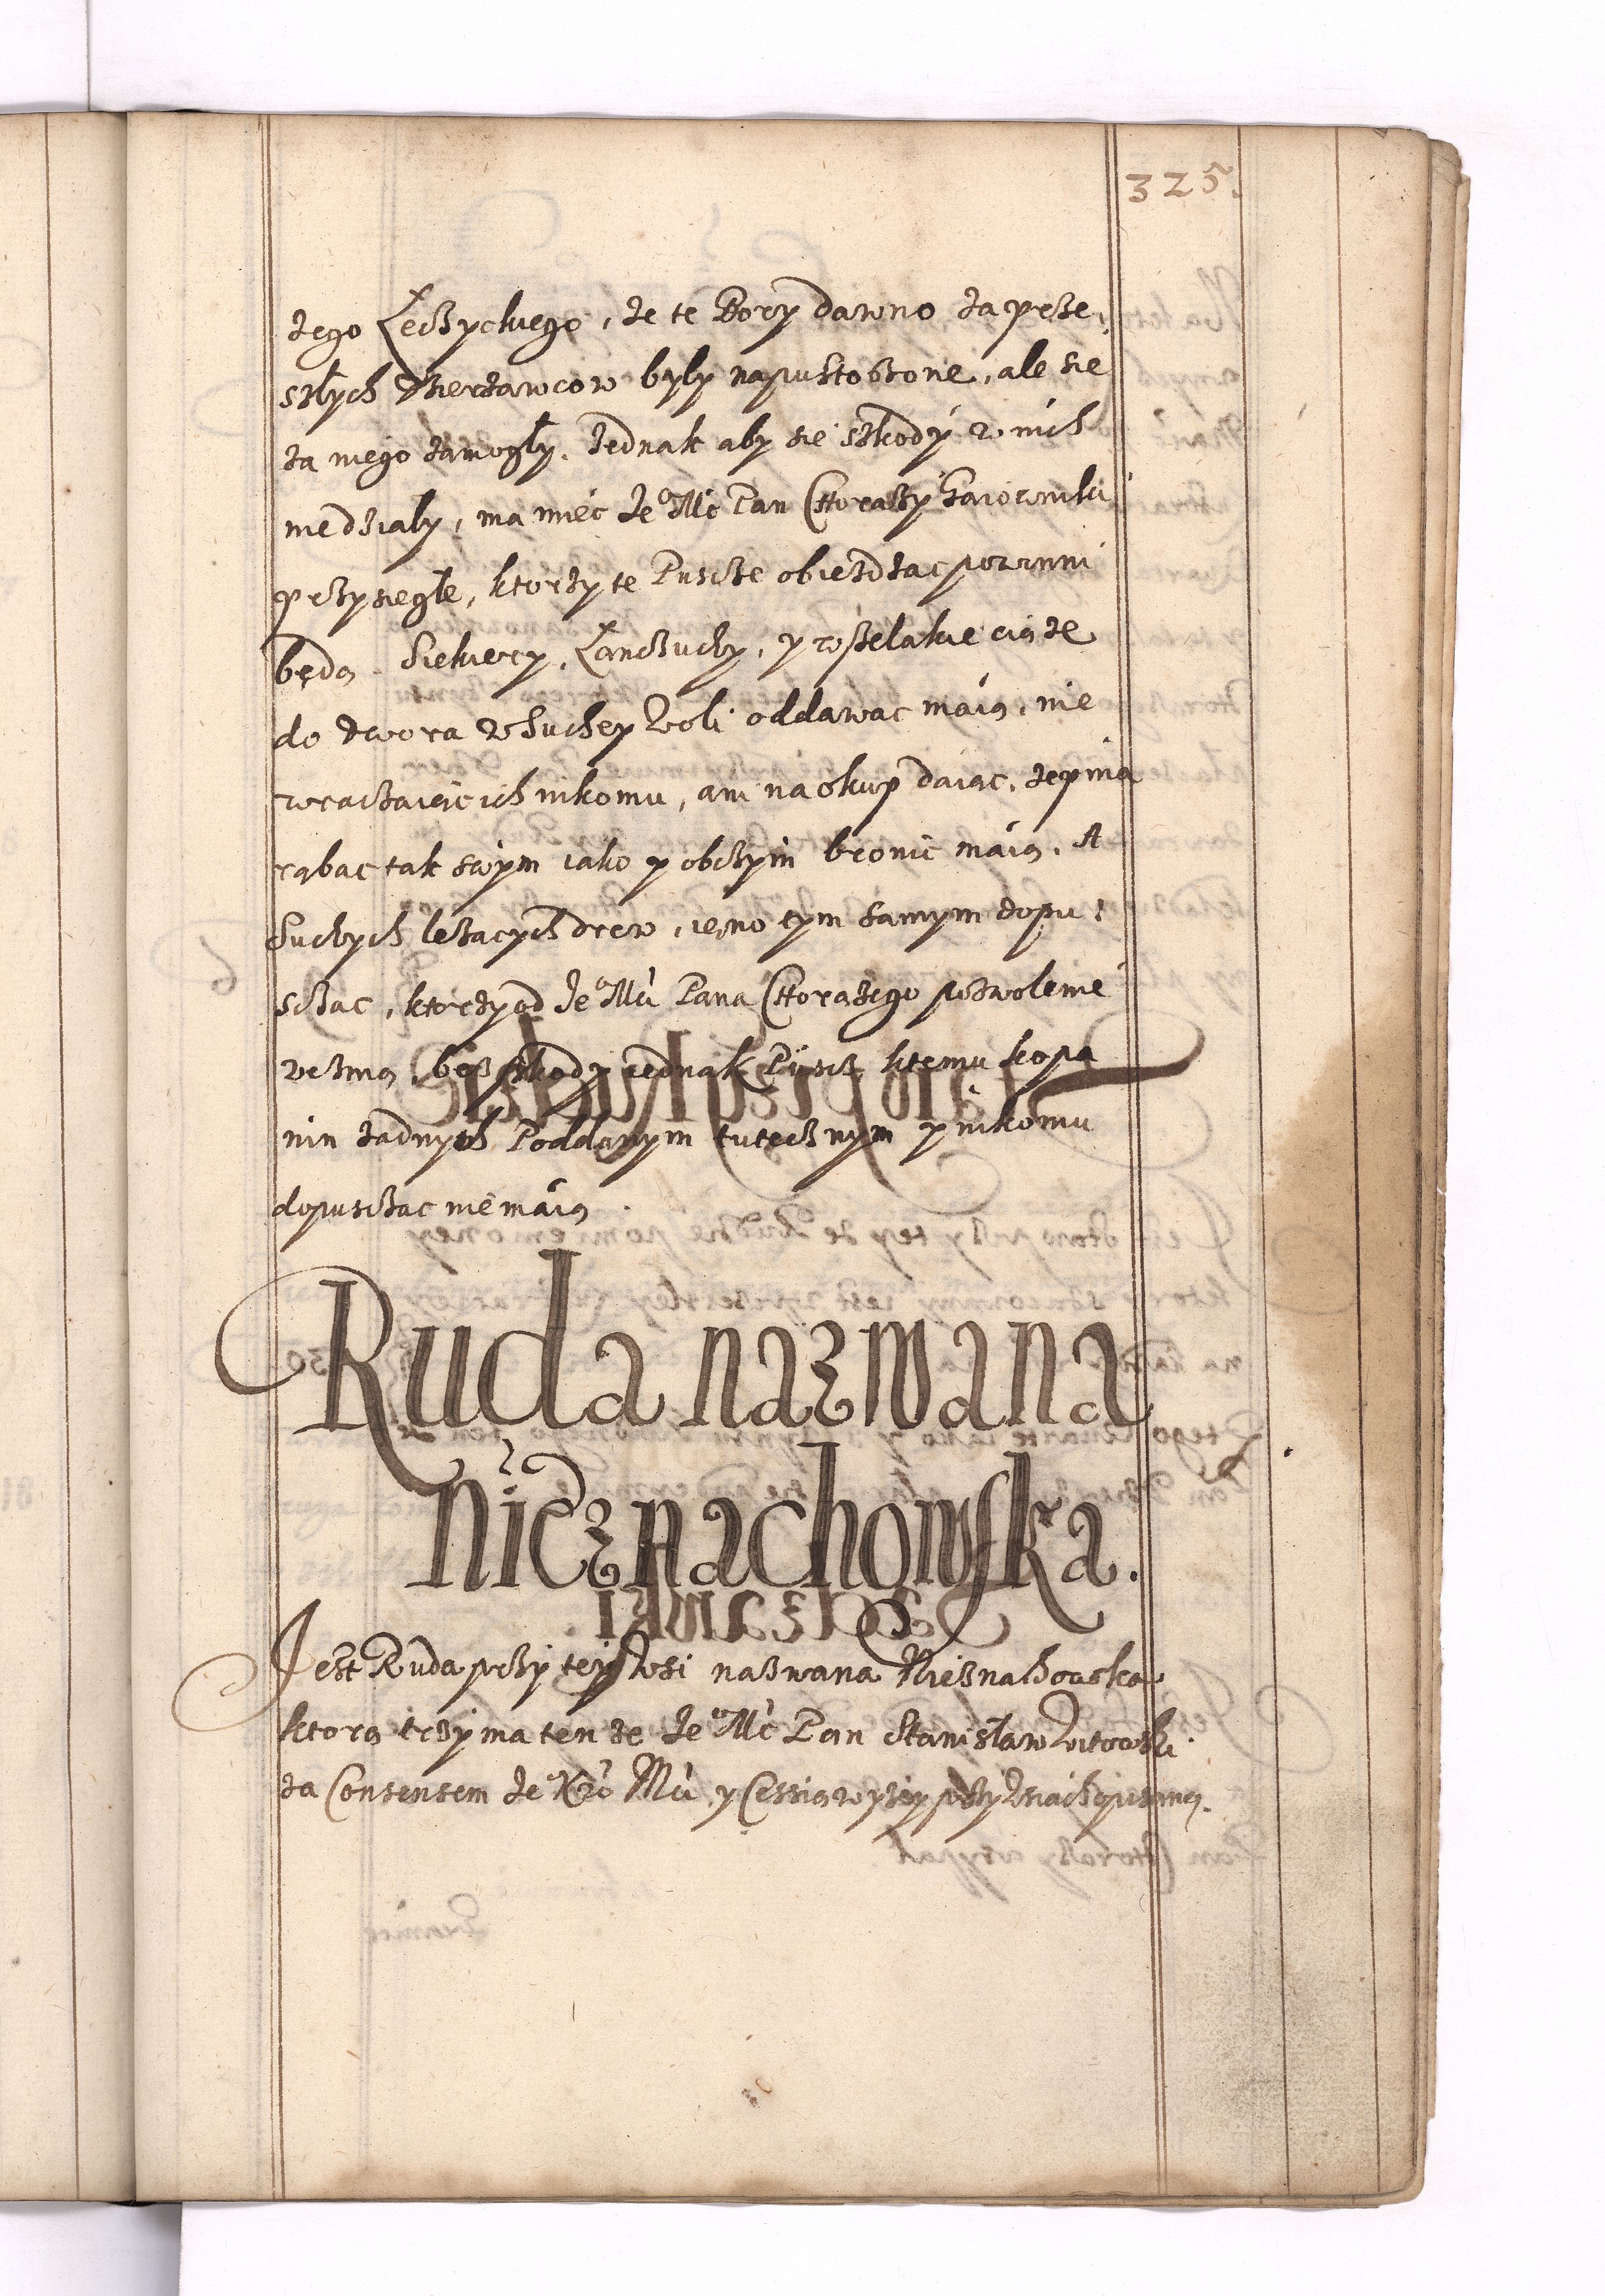 325.
żego Łęczyckiego, że te Bory dawno za prze¬
szłych Dzierżawcow były napustoszone, ale sie
za niego zamogły. Jednak aby sie szkody w nich
niedziały, ma miec Je° Mć Pan Chorąży Gaiowniki
przysięgłe, ktorzy te Puscze obiezdzac powinni
będą. Siekiery, Łanczuchy, y wszelakie ciąże
do dwora w Suchey Woli oddawac maią, nie
wracaiąc ich nikomu, ani na okup daiąc, żepnia
rąbac tak swym iako y obczym bronic maią. A
Suchych leżacych drew, ieno tym samym dopu¬
sczac, ktorzy od Je° Mci Pana Chorążego pozwolenie
wezmą, bez szkody iednak Puscz, ktemu kopa
nin żadnych Poddanym tutecznym y nikomu
dopusczac nie maią.
Ruda nazwana
Nieznachowska.
Jest Ruda przy tey Wsi nazwana Nieznachowska
ktorą trzyma ten że Je° Mć Pan Stanisław Witowski
za Consensem Je° Kró Mci y Cessią wyżey przy Wsiach pisaną.